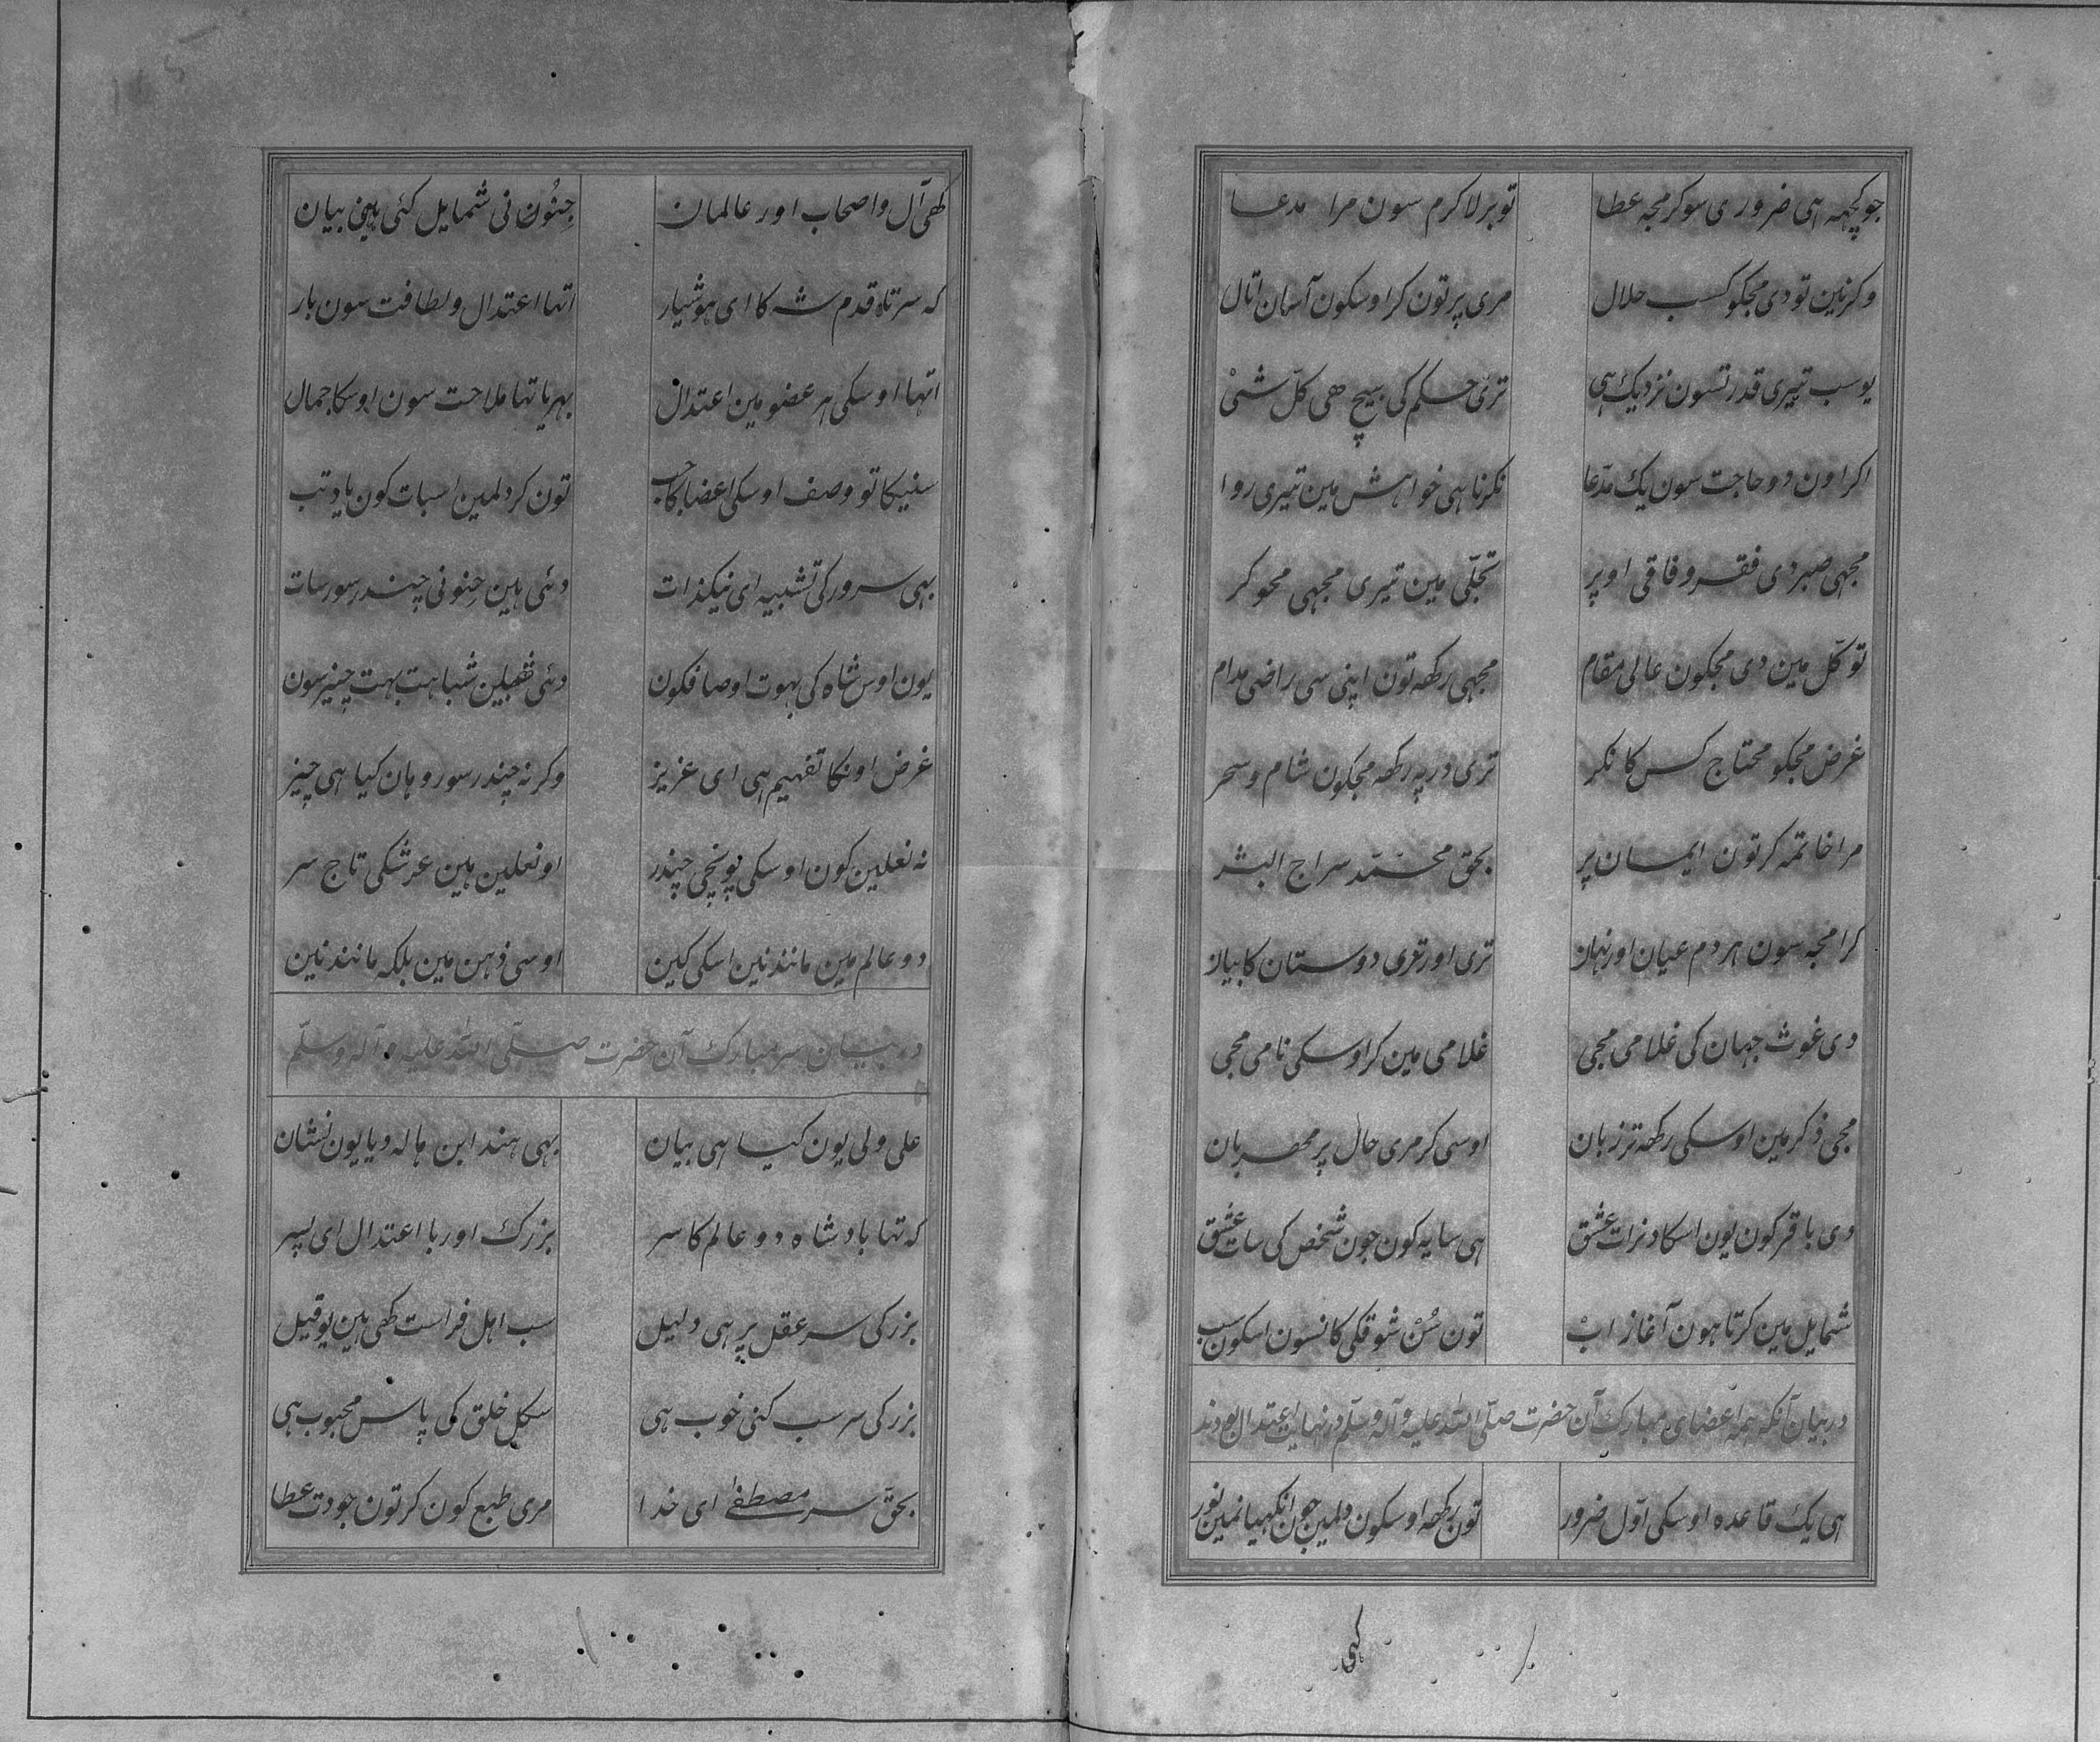 جو کچہہ ہی ضروری سو کر مجہ عطا	تو بر لا کرم سون مرا مدعا
وکرنین تو دی مجکو کسب حلال	مری پر تون کر اوسکون آسان اتال
یو سب تیری قدرتسون نزدیک ہی	تری حکم کی بیچ ھی کلّ شیٔ
اکر اون دو حاجت سون یک مدّعا	نکرنا ہی خواہش مین تیری روا
مجہی صبر دی فقر و فاقی اوپر	تجلّی مین تیری مجہی محو کر
توکّل مین دی مجکون عالی مقام	مجہی رکھہ تون اپنی سی راضی مدام
غرض مجکو محتاج کس کا نکر	تری در پہ رکھہ مجکون شام و سحر
مرا خاتمہ کر تون ایمان پر	بحق محمّد سراج البشر
کرا مجہ سون ہر دم عیان اور نہان	تری اور تری دوستان کا بیان
دی غوث جہان کی غلامی مجی	غلامی مین کر اوسکی نامی مجی
مجی ذکر مین اوسکی رکھہ تر زبان	اوسی کر مری حال پر مھربان
دی باقر کون یون اسکا دنرات عشق	ہی سایہ کون جون شخص کی سات عشق
شمایل مین کرتا ہون آغاز ابْ	تون سُنْ شوقکی کانسون اسکون سب
در بیان آنکہ ہمہ اعضای مبارک آن حضرت صلّی اللہ علیہ و آلہ و سلّم در نہایت اعتدال بودند
ہی یک قاعدہ اوسکی اوّل ضرور	تون رکھہ اوسکون دلمین جون انکھیانمین نور
کہی
کھی آل و اصحاب اور عالمان	جنُون نی شمایل کئی ہین بیان
کہ سر تاہ قدم شہ کا ای ہوشیار	اتہا اعتدال و لطافت سون بار
اتہا اوسکی ہر عضو مین اعتدال	بہریا تہا ملاحت سون اوسکا جمال
سنیکا تو وصف اوسکی اعضا کا جب	تون کر دلمین اسبات کون یاد تب
بہی سرور کی تشبیہ ای نیکذات	دئی ہین جنو نی چندر سور سات
یون اوس شاہ کی بہوت اوصافکون	دئی شباہت بہت چیز سون
غرض اونکا تفہیم ہی ای عزیز	وکر نہ چندر سور وہان کیا ہی چیز
نہ نعلین کون اوسکی پونچی چندر	او نعلین ہین عرشکی تاج سر
دو عالم مین مانند نین اسکی کین	اوسی ذہن مین بلکہ مانند نین
در بیان سر مبارک آن حضرت صلّی اللہ علیہ و آلہ و سلّم
علی ولی یون کیا ہی بیان	بہی ہند ابن ہالہ دیا یون نشان
کہ تہا بادشاہ دو عالم کا سر	بزرک اور با اعتدال ای پسر
بزرکی سر عقل پر ہی دلیل	سب اہل فراست کھی ہین یو قیل
بزرکی سر سب کنی خوب ہی	سکل خلق کی پاس محبوب ہی
بحقّ سر مصطفےٰ ای خدا	مری طبع کون کر تون جودت عطا